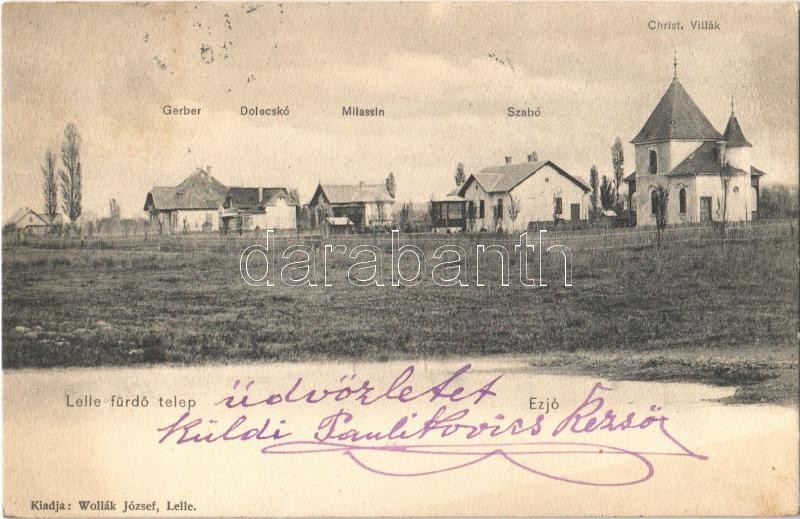 Christ. Villák
Gerber Dolecskó Milassin Szabó
darabanth
Lelle fürdő telep üdvözletet Ezjó
Küldi Paulikovics Rezsö
Kiadja: Wollák József, Lelle.